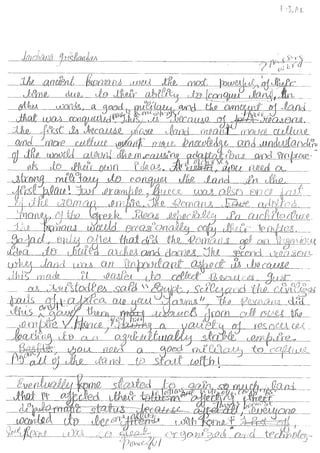 The ancient Romans were the most powerful of their
time due to their ability to conquer land, In
other words, a good military and the amount of land
that was conquered. This is because of reasons.
The first is because more land meant more culture
and more culture meant more knowledge and understanding
of the world around them causing adaptations and improve-
to their own ideas. you need a
strong military to conquer the land in the
first place! For example, Greece was also once part
of the Roman empire. The Romans
many of the Greek ideas especially in architecture
The Romans would occasionally copy their temples.
In fact, only after that did the Romans get an ingenious
idea to build arches and domes. The second reason
why land was an important aspect is because
this made it easier to collect resources. Just
as Aristides said "Egypt, Sicily and the civilized
parts of Africa are your farms". The Romans did
this gave them more resources from all over the
empire. Hence, a variety of resources
leading to an agriculturally stable empire.
you need a good military to capture
all of the land to start with!
Eventually Rome started to gain so much land
that it affected their
diplomatic status because everyone
wanted to be friends with Rome
Rome was so organized and technolog-
powerful